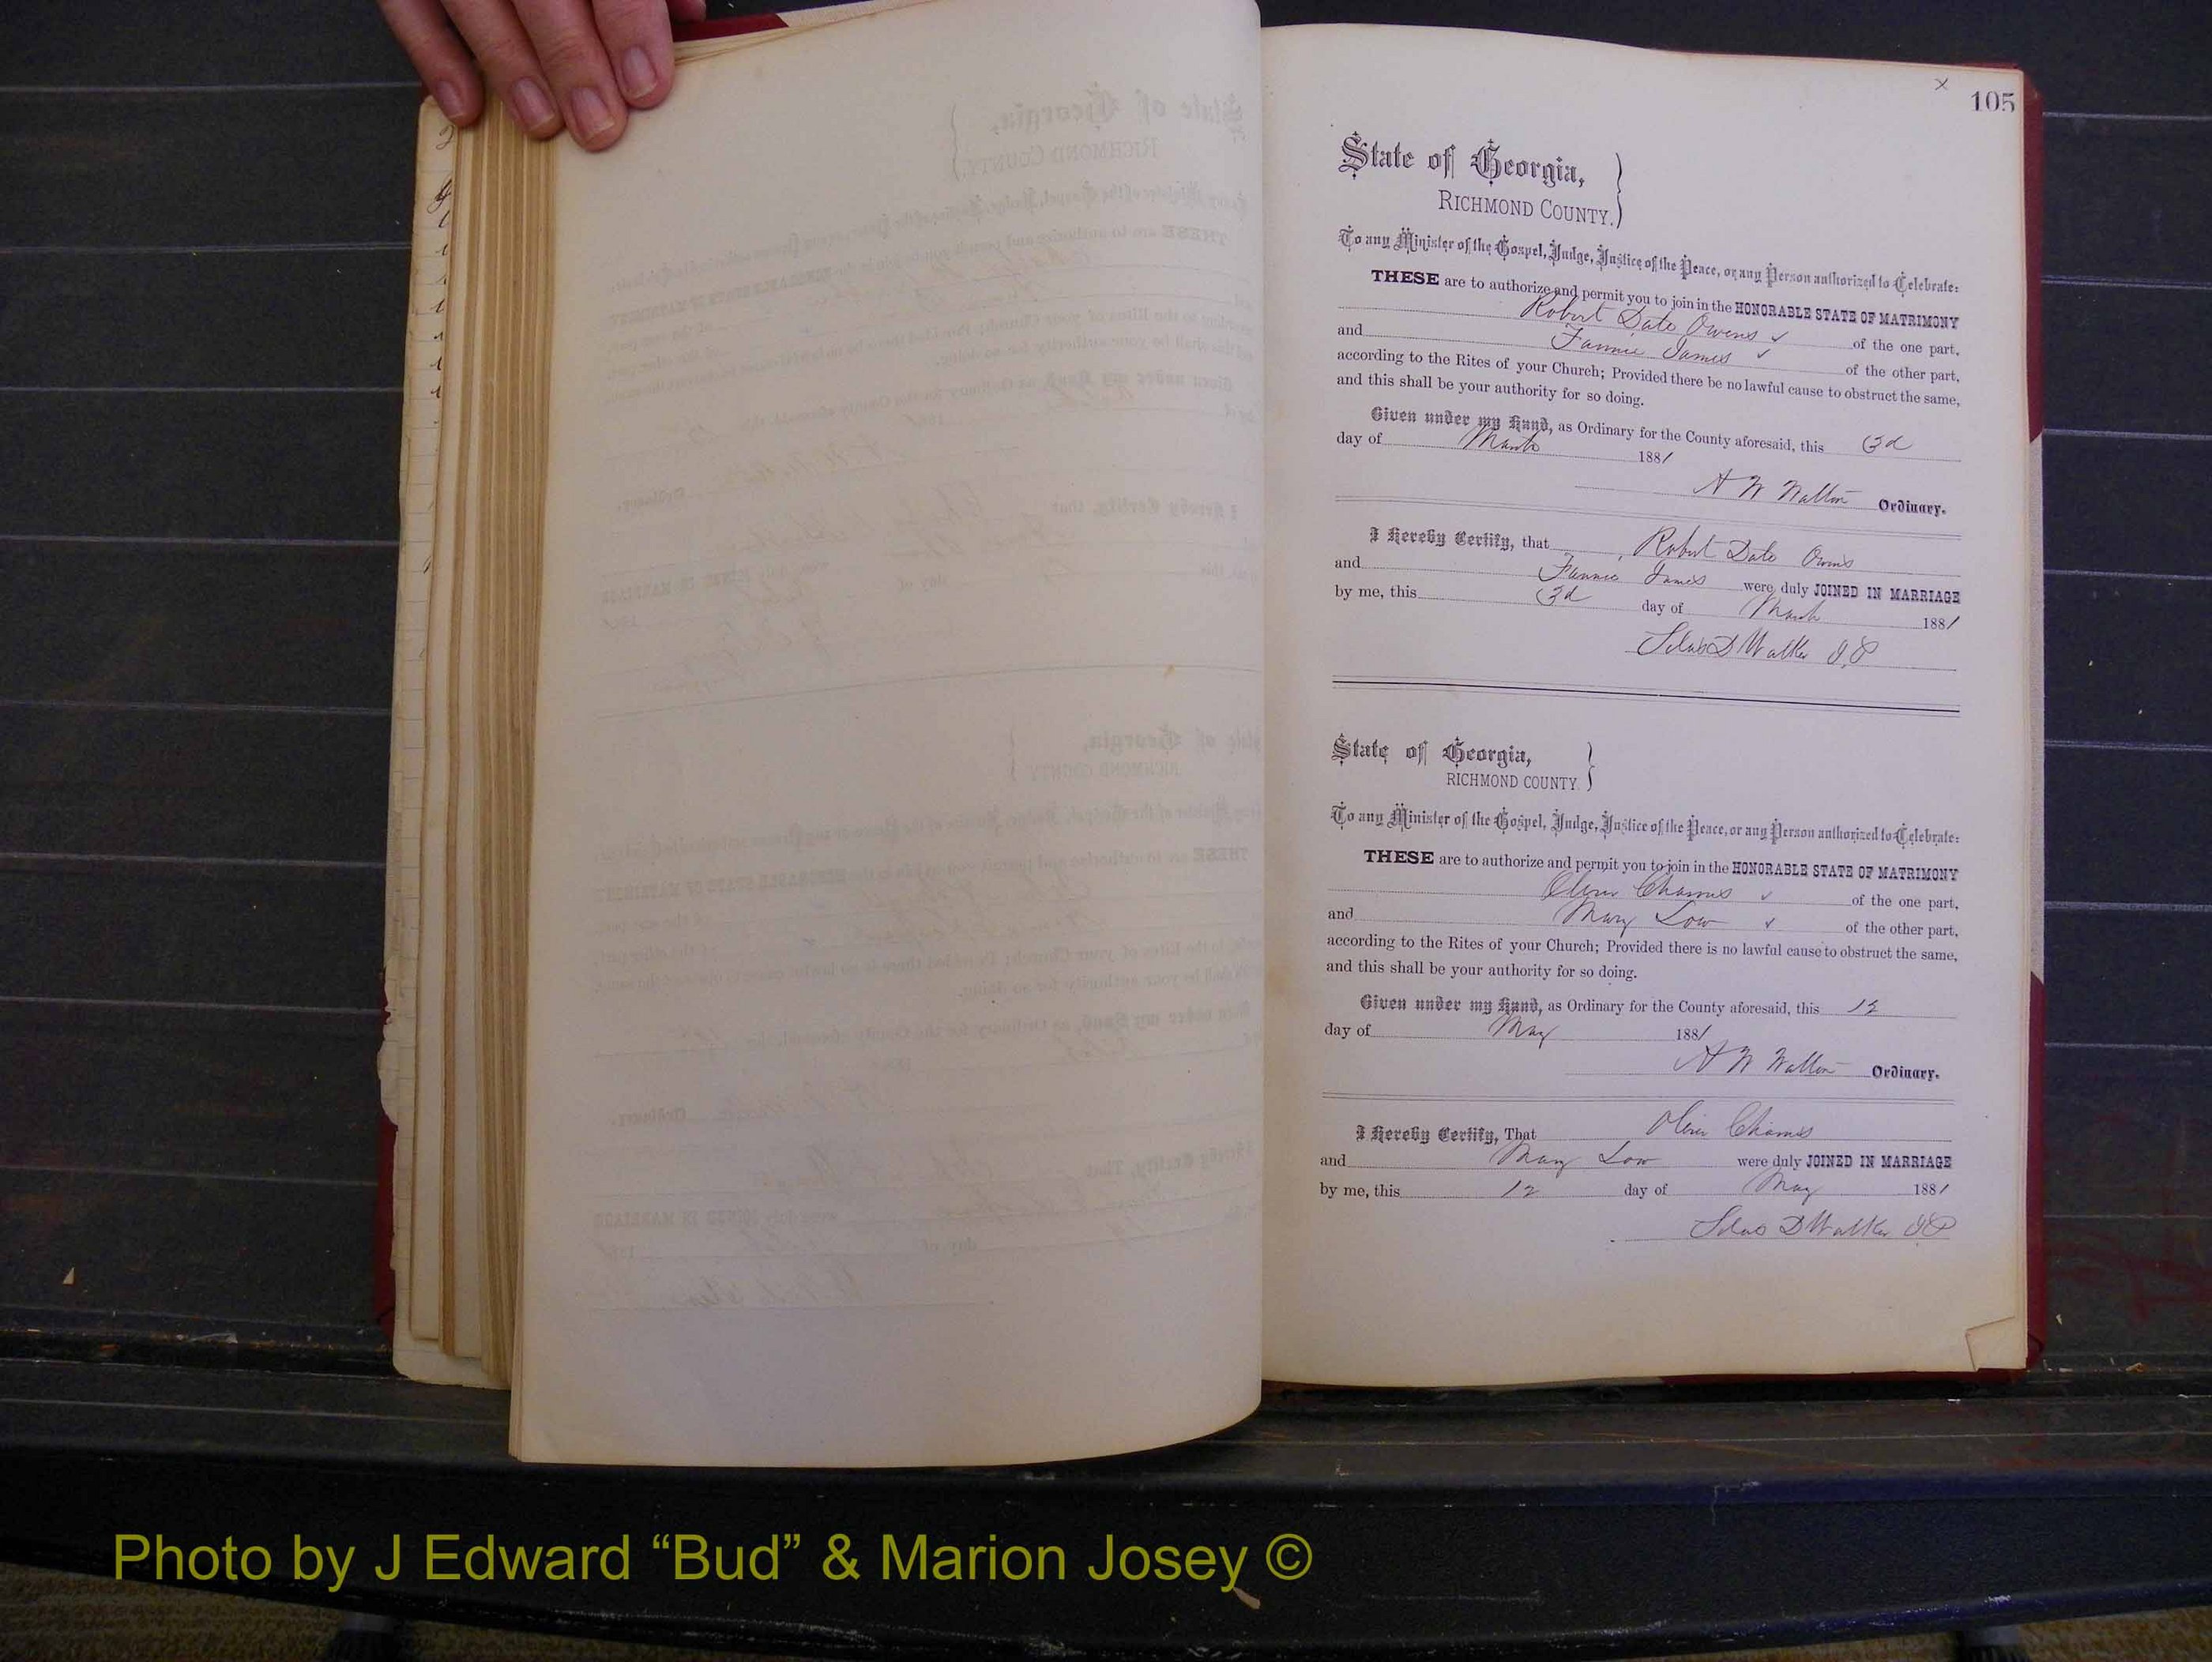 x
105
State of Georgia,
RICHMOND COUNTY.
To any Minister of the Gospel, Judge, Justice of the Peace, or any Person authorized to Celebrate:
THESE are to authorize and permit you to join in the HONORABLE STATE OF MATRIMONY
Robert Dale Owens ✓ of the one part,
and Fannie James ✓ of the other part,
according to the Rites of your Church; Provided there be no lawful cause to obstruct the same,
and this shall be your authority for so doing.
Given under my Hand, as Ordinary for the County aforesaid, this 3d
day of March 1881
A W Walton Ordinary.
I Hereby Certify, that Robert Dale Owens
and Fannie James were duly JOINED IN MARRIAGE
by me, this 3d day of March 1881
Silas D Walker J.P
State of Georgia,
RICHMOND COUNTY.
To any Minister of the Gospel, Judge, Justice of the Peace, or any Person authorized to Celebrate:
THESE are to authorize and permit you to join in the HONORABLE STATE OF MATRIMONY
Oliver ✓ of the one part,
and Mary Low ✓ of the other part,
according to the Rites of your Church; Provided there is no lawful cause to obstruct the same,
and this shall be your authority for so doing.
Given under my Hand, as Ordinary for the County aforesaid, this 12
day of May 1881
A W Walton Ordinary.
I Hereby Certify, That Oliver
and Mary Low were duly JOINED IN MARRIAGE
by me, this 12 day of May 1881
Silas D Walker JP
Photo by J Edward “Bud” & Marion Josey ©